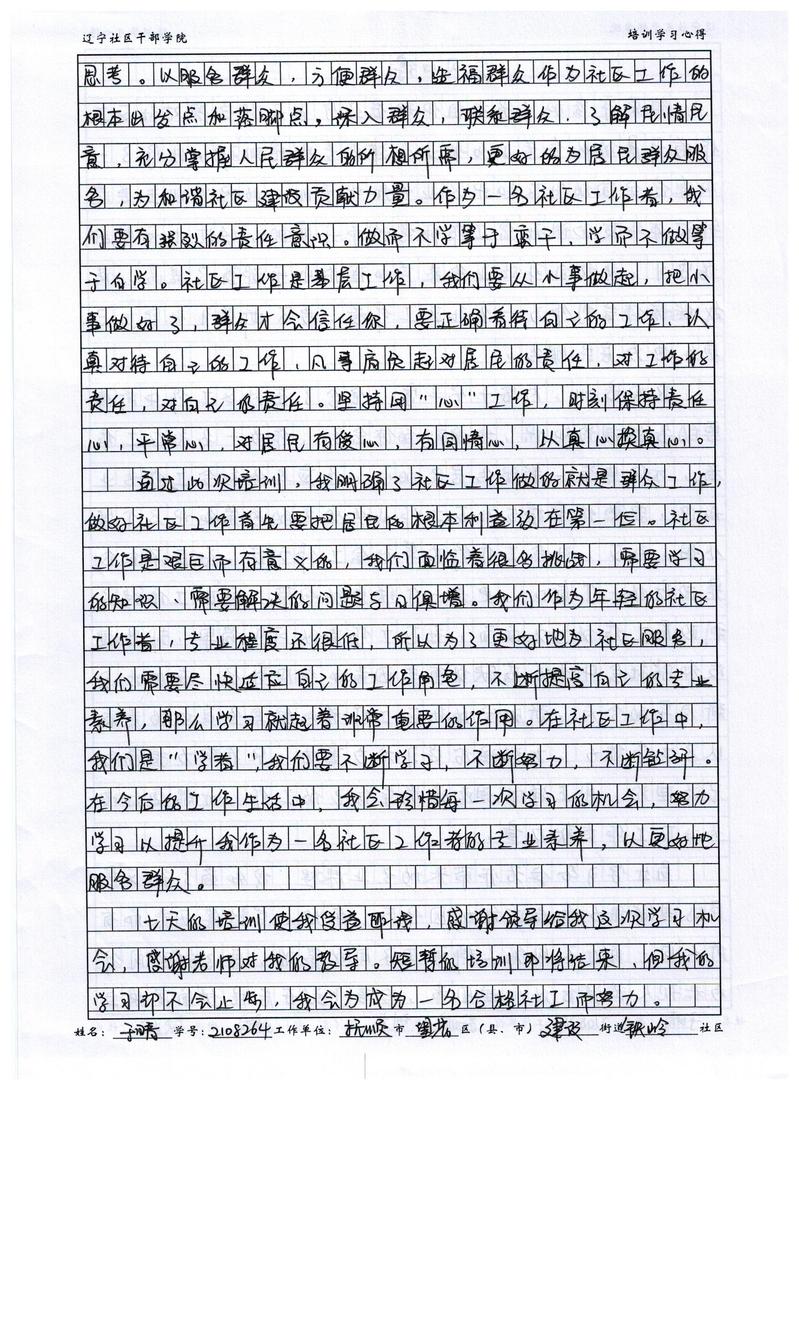 辽宁社区干部学院 培训学习心得
思考。以服务群众，方便群众，造福群众作为社区工作的
根本出发点和落脚点。深入群众，联和群众，了解民情民
意，充分掌握人民群众的所想所需，更好的为居民群众服
务，为和谐社区建设贡献力量。作为一名社区工作者，我
们要有强烈的责任意识。做而不学等于蛮干，学而不做等
于白学。社区工作是基层工作，我们要从小事做起，把小
事做好了，群众才会信任你，要正确看待自己的工作，认
真对待自己的工作，凡事肩负起对居民的责任，对工作的
责任，对自己的责任。坚持用“心”工作，时刻保持责任
心，平常心，对居民有爱心，有同情心，以真心换真心。
通过此次培训，我明确了社区工作做的就是群众工作，
做好社区工作首先要把居民的根本利益放在第一位。社区
工作是艰巨而有意义的，我们面临着很多挑战，需要学习
的知识、需要解决的问题与日俱增。我们作为年轻的社区
工作者，专业程度还很低，所以为了更好地为社区服务，
我们需要尽快适应自己的工作角色，不断提高自己的专业
素养，那么学习就起着非常重要的作用。在社区工作中，
我们是“学者”，我们要不断学习，不断努力，不断钻研。
在今后的工作生活中，我会珍惜每一次学习的机会，努力
学习以提升我作为一名社区工作者的专业素养，以更好地
服务群众。
七天的培训使我受益匪浅，感谢领导给我这次学习机
会，感谢老师对我的教导。短暂的培训即将结束，但我的
学习却不会止步，我会为成为一名合格社工而努力。
姓名：于晴 学号：2108264 工作单位：抚顺 市 望花 区（县、市）建设 街道 铁岭 社区